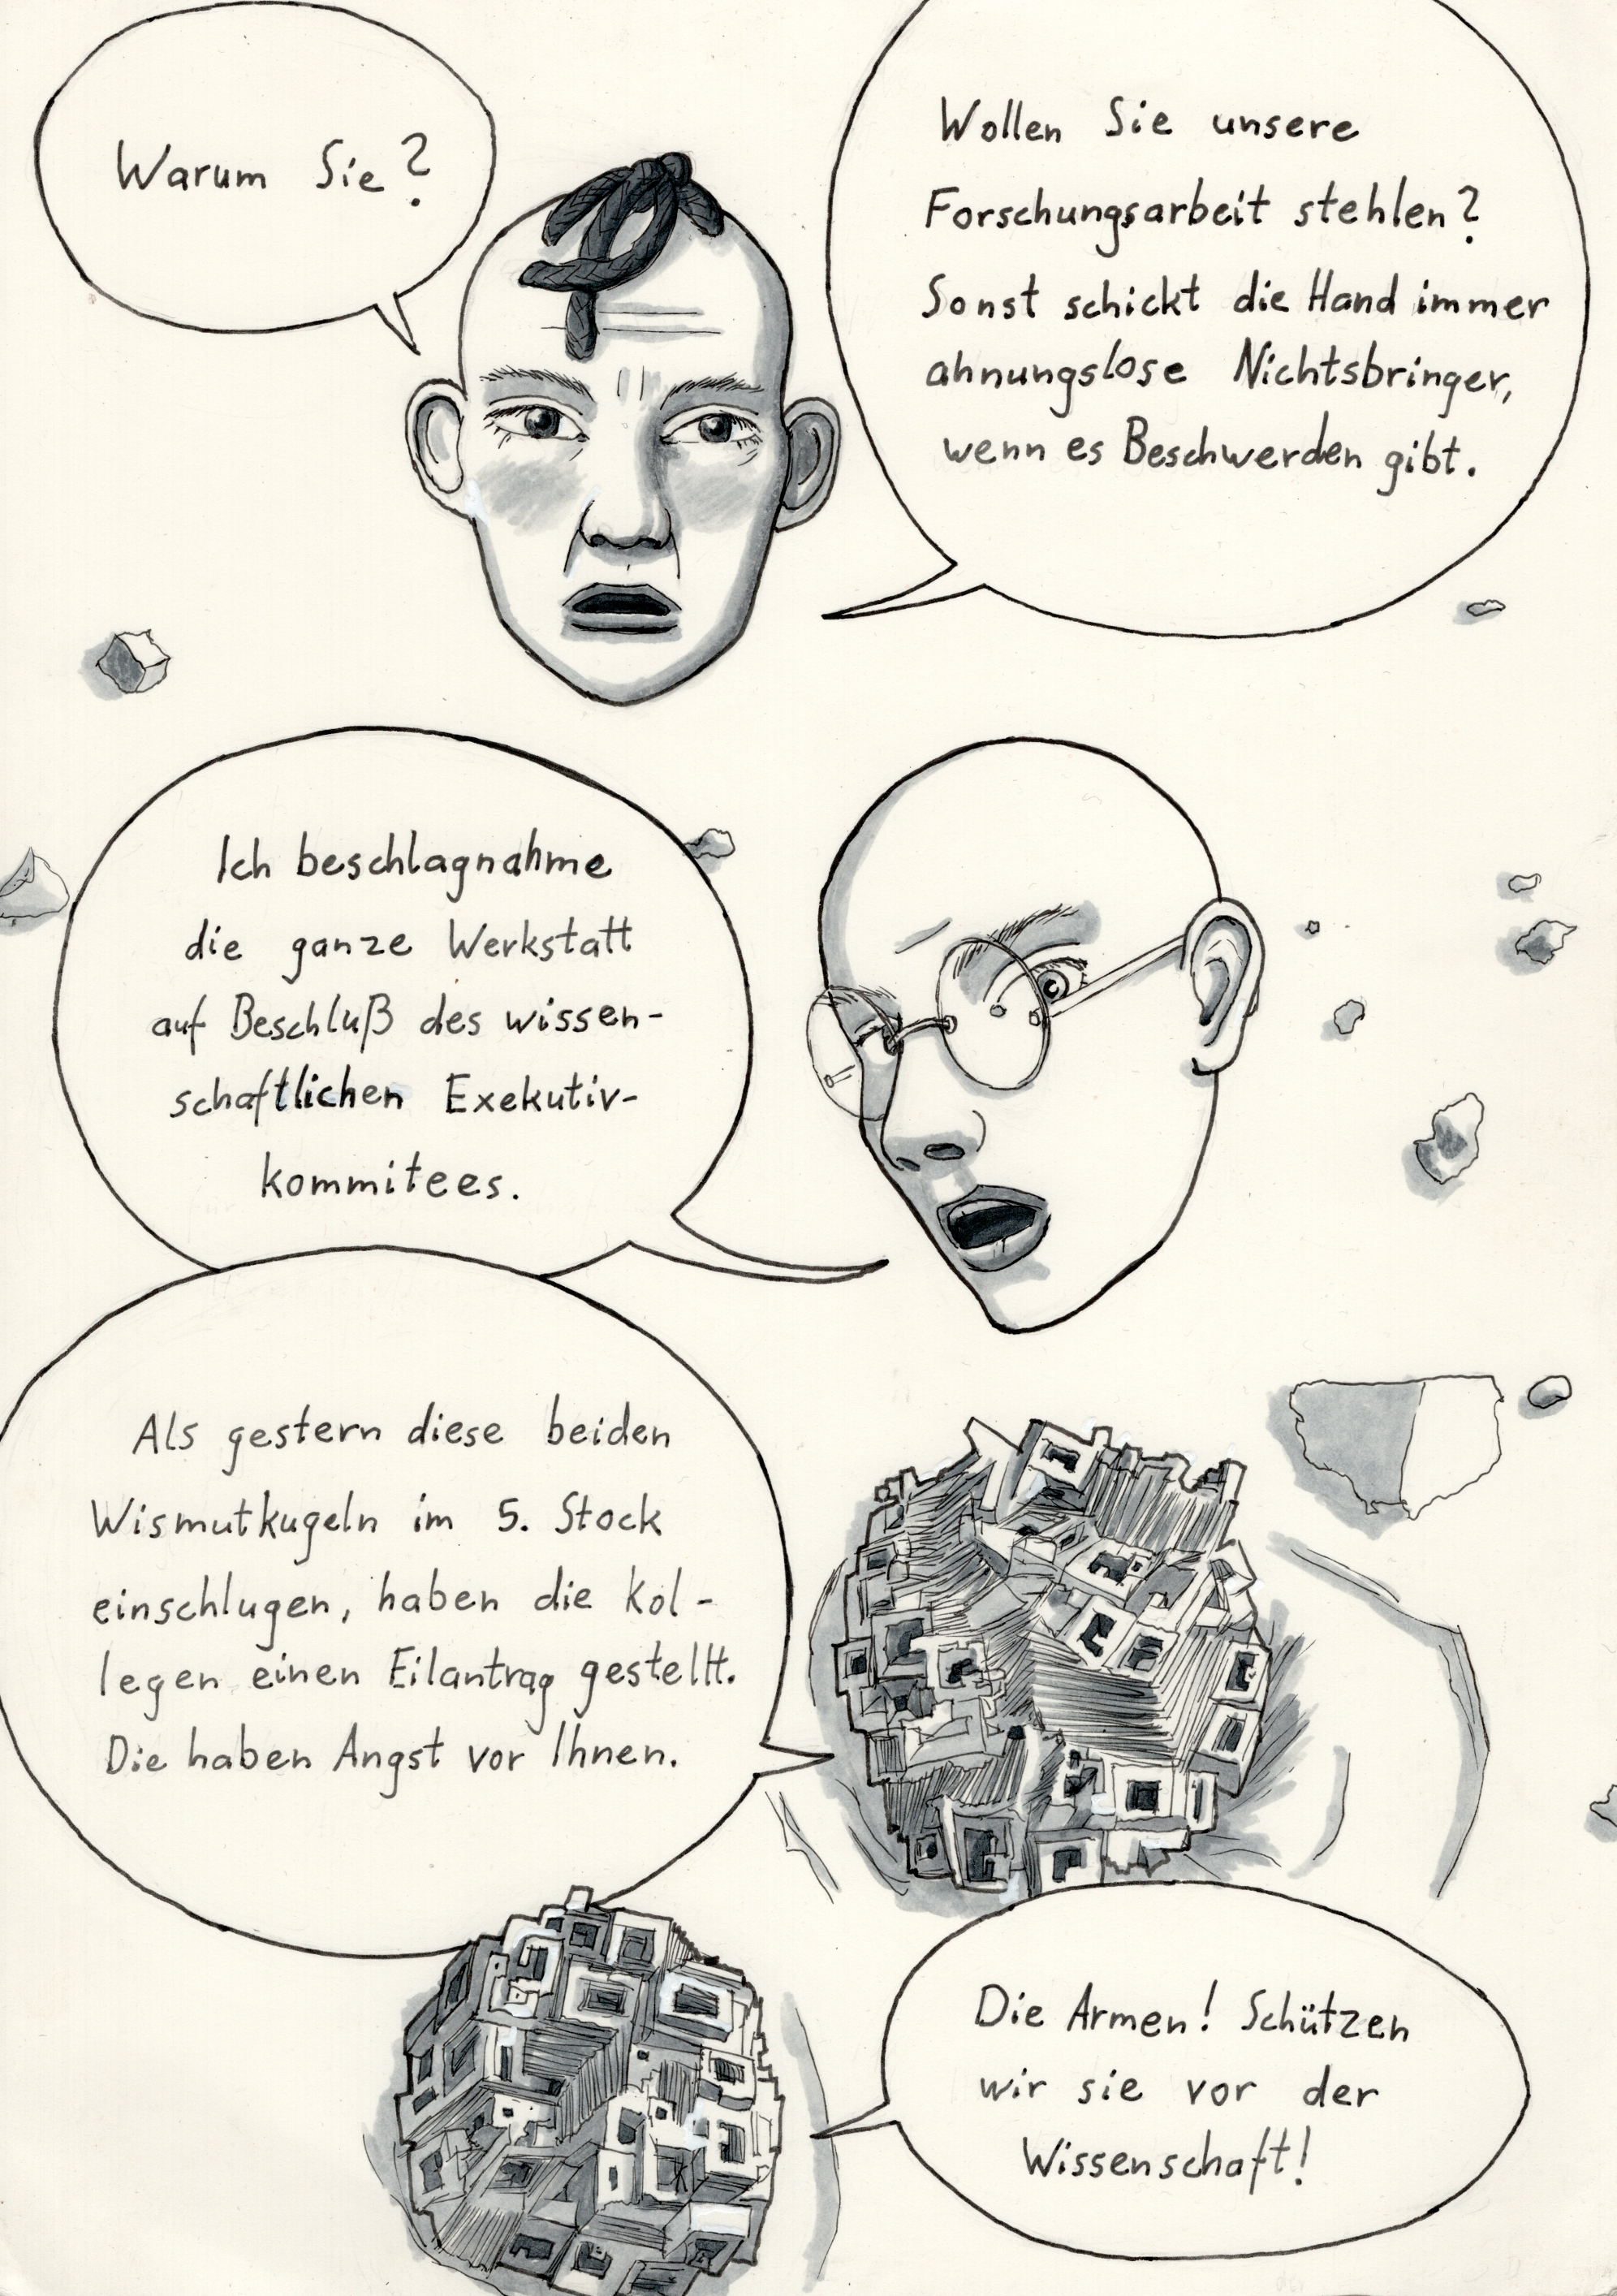 Warum Sie?
Wollen Sie unsere
Forschungsarbeit stehlen?
Sonst schickt die Hand immer
ahnungslose Nichtsbringer,
wenn es Beschwerden gibt.
Ich beschlagnahme
die ganze Werkstatt
auf Beschluß des wissen-
schaftlichen Exekutiv-
kommitees.
Als gestern diese beiden
Wismutkugeln im 5. Stock
einschlugen, haben die Kol-
legen einen Eilantrag gestellt.
Die haben Angst vor Ihnen.
Die Armen! Schützen
wir sie vor der
Wissenschaft!